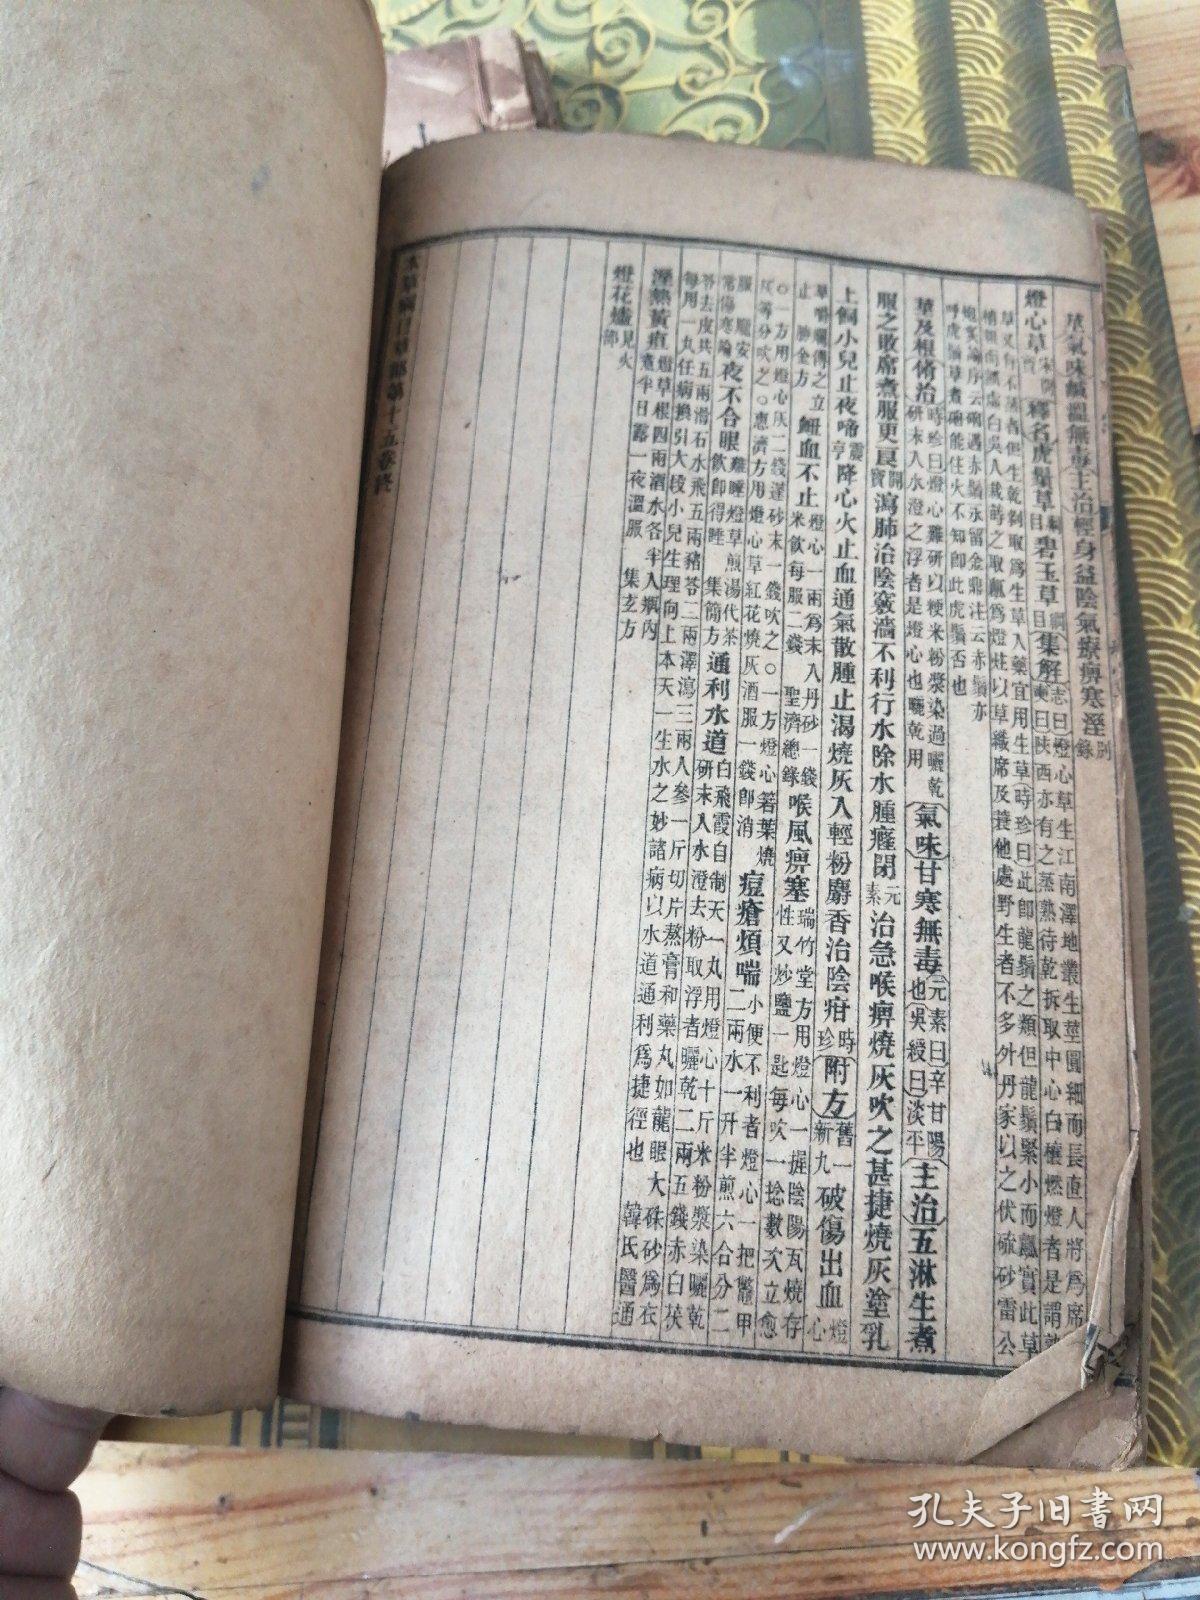 莖氣味鹹溫無毒主治輕身益陰氣療痹寒溼別錄
燈心草宋開寶釋名虎鬚草綱目碧玉草綱目集解志曰燈心草生江南澤地叢生莖圓細而長直人將爲席
曰陝西亦有之蒸熟待乾拆取中心白穰燃燈者是謂
草又有不蒸者但生乾剝取爲生草入藥宜用生草時珍曰此卽龍鬚之類但龍鬚緊小而瓤實此草
稍麤而瓤虛白吳人栽蒔之取瓤爲燈炷以草織席及蓑他處野生者不多外丹家以之伏硫砂雷公
炮炙論序云硇遇赤鬚永留金鼎注云赤鬚亦
呼虎鬚草煮硇能住火不知卽此虎鬚否也
莖及根修治時珍曰燈心難研以粳米粉漿染過曬乾
研末入水澄之浮者是燈心也曬乾用
氣味甘寒無毒元素曰辛甘陽也吳綬曰淡平主治五淋生煮
服之敗席煮服更良開寶瀉肺治陰竅濇不利行水除水腫癃閉元素治急喉痹燒灰吹之甚捷燒灰塗乳
上飼小兒止夜啼震亨降心火止血通氣散腫止渴燒灰入輕粉麝香治陰疳時珍附方舊一新九破傷出血燈心
草嚼爛傅之立止勝金方衄血不止燈心一兩爲末入丹砂一錢米飲每服二錢聖濟總錄喉風痹塞瑞竹堂方用燈心一握陰陽瓦燒存
性又炒鹽一匙每吹一捻數次立愈
○一方用燈心灰二錢蓬砂末一錢吹之○一方燈心箬葉燒
灰等分吹之○惠濟方用燈心草紅花燒灰酒服一錢卽消痘瘡煩喘小便不利者燈心一把鱉甲
二兩水一升半煎六合分二
服龐安常傷寒論夜不合眼難睡燈草煎湯代茶飲卽得睡集簡方通利水道白飛霞自制天一丸用燈心十斤米粉漿染曬乾
研末入水澄去粉取浮者曬乾二兩五錢赤白茯
苓去皮共五兩滑石水飛五兩豬苓二兩澤瀉三兩人參一斤切片熬膏和藥丸如龍眼大硃砂爲衣
每用一丸任病換引大段小兒生理向上本天一生水之妙諸病以水道通利爲捷徑也韓氏醫通
溼熱黃疸燈草根四兩酒水各半入瓶內
煮半日露一夜溫服集玄方
燈花燼見火部
本草綱目草部第十五卷終
孔夫子旧书网
www.kongfz.com